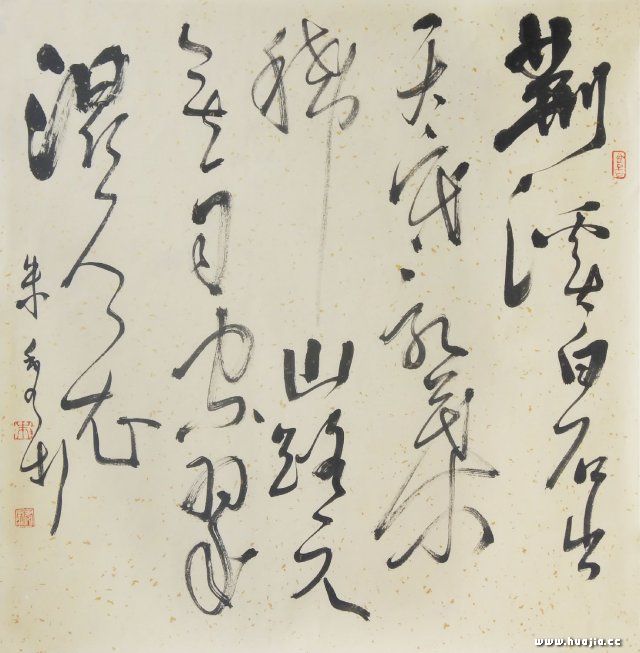 荆溪白石出
天寒紅葉
稀山路元
無雨空翠
濕人衣
朱
www.huajia.cc